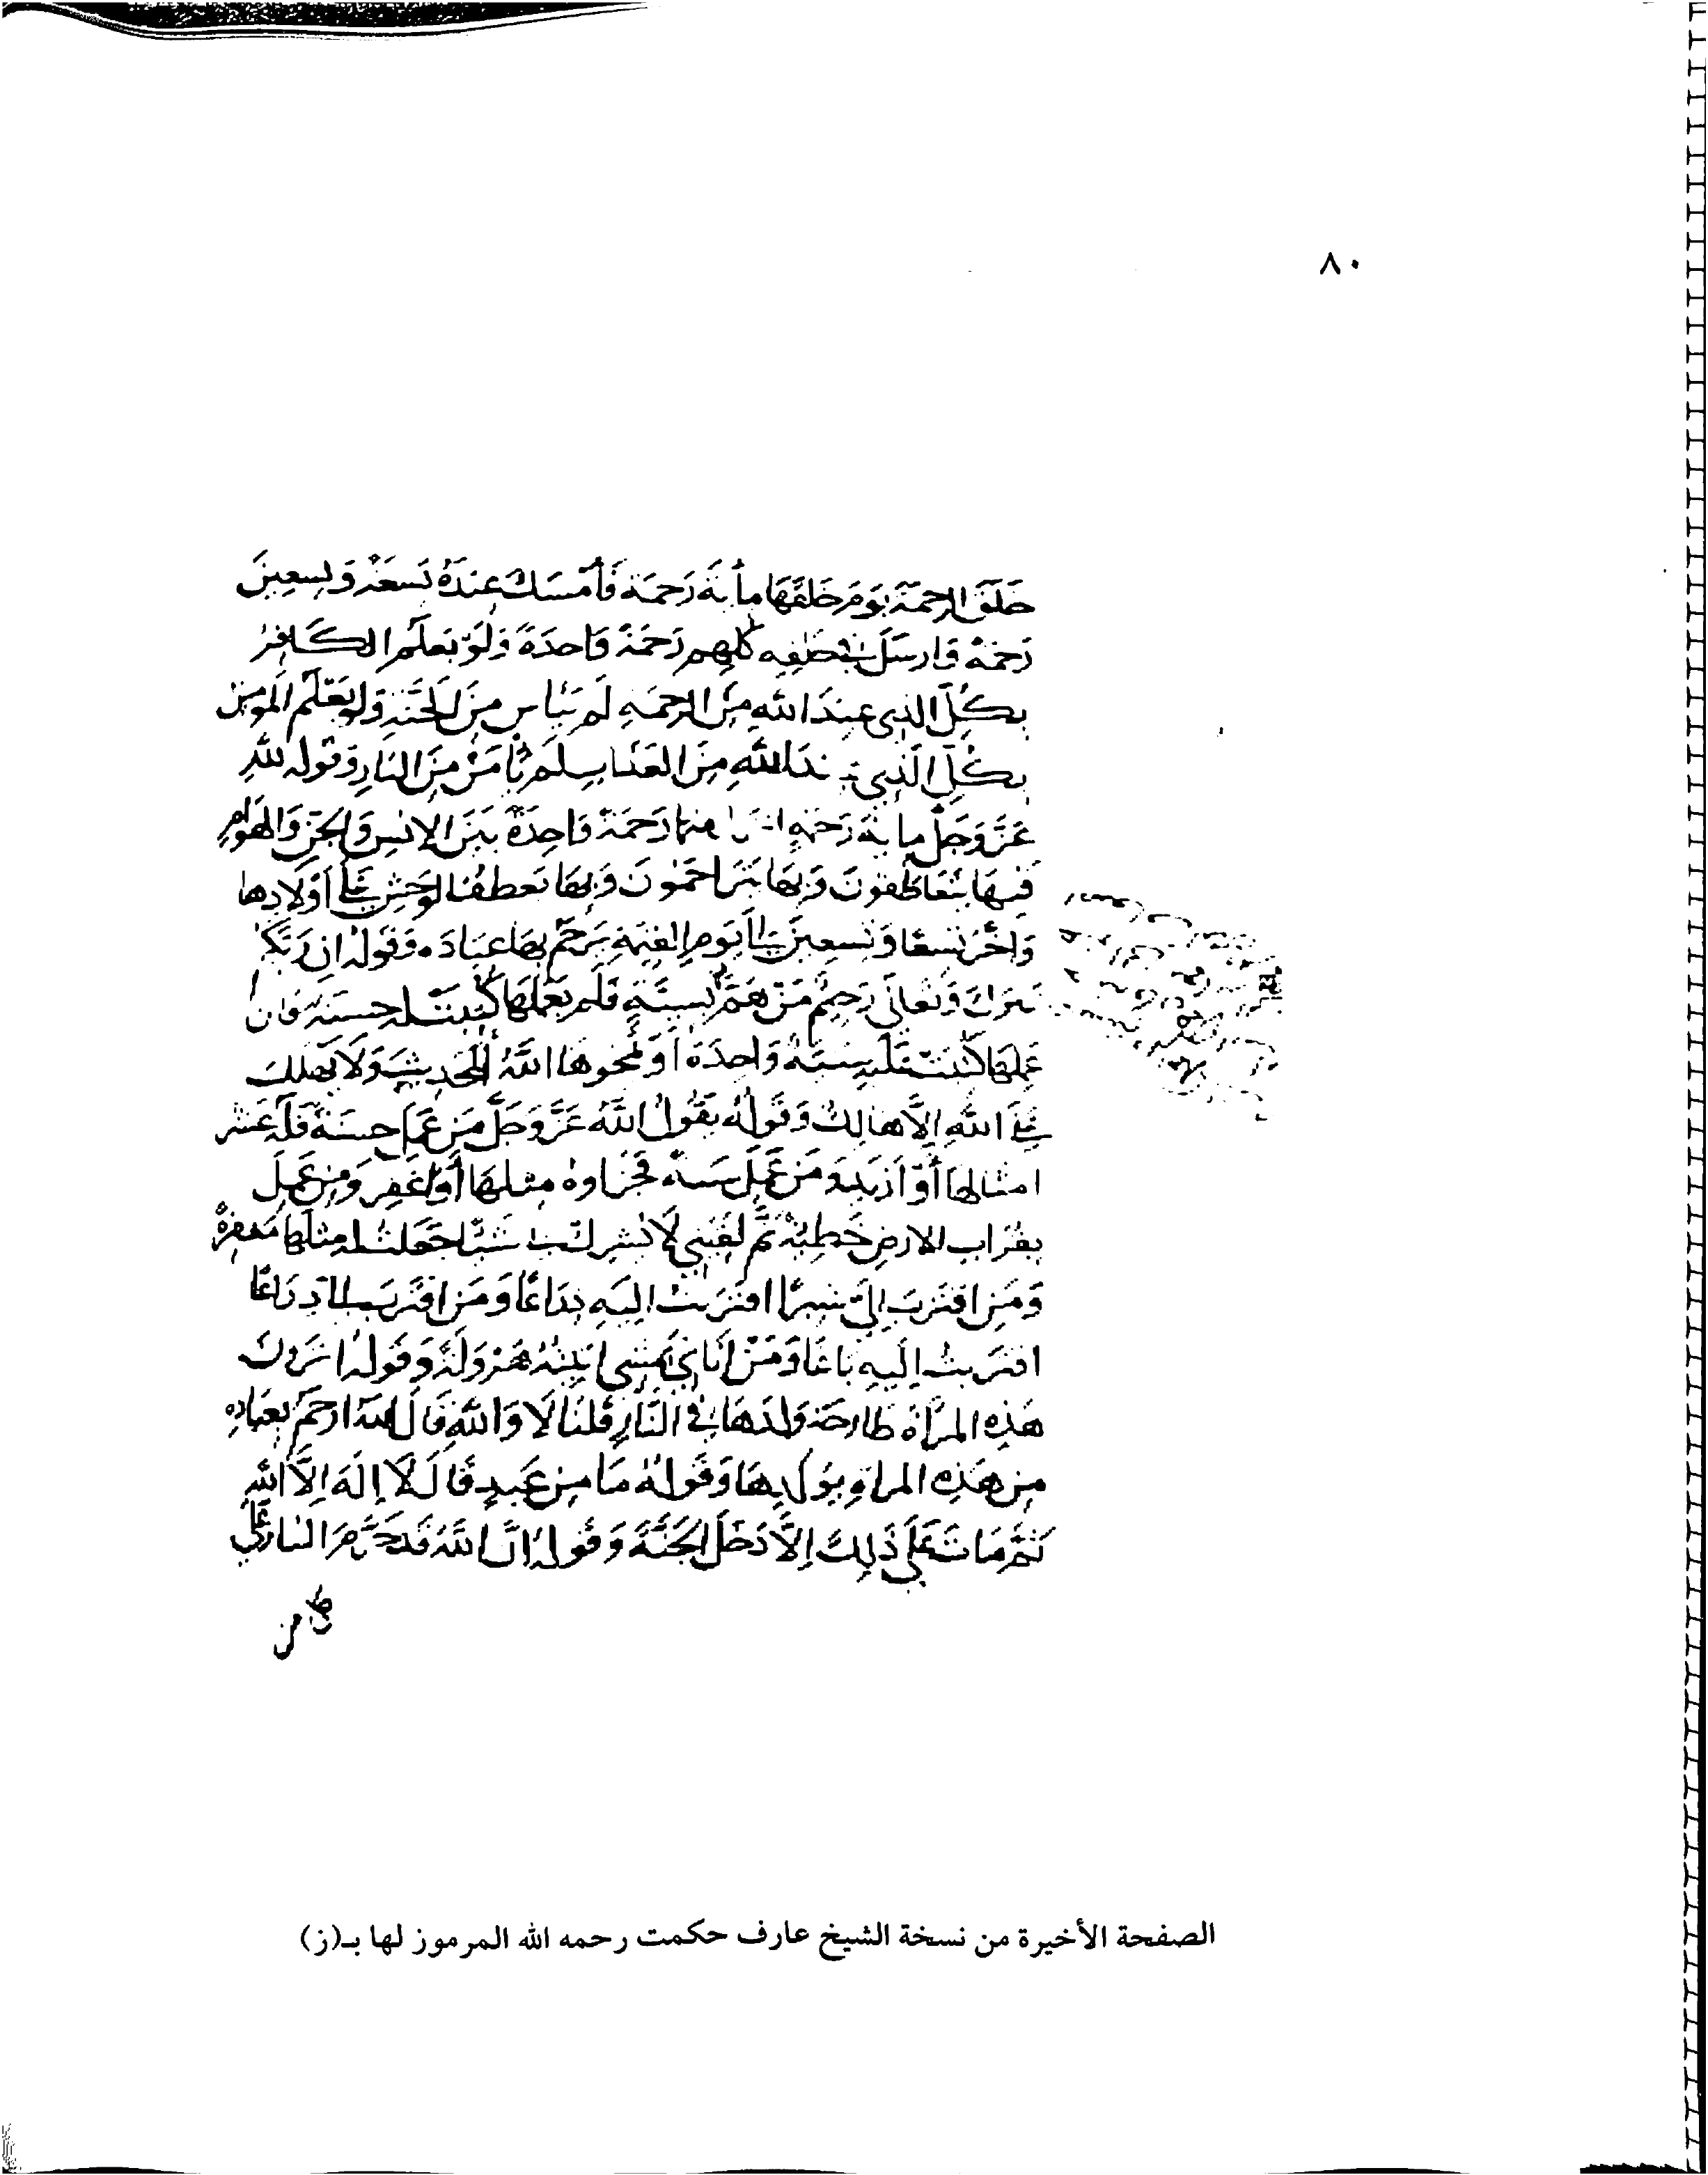 ٨٠
خلق الرحمة يوم خلقها مائة رحمة فأمسك عنده تسعة وتسعين
رحمة وارسل في خلقه كلهم رحمة واحدة ولو يعلم الكافر
بكل الذي عند الله من الرحمة لم يياس من الجنة ولو يعلم المومن
بكل الذي عند الله من العذاب لم يأمن من النار وقوله لله
عز وجل مائة رحمة منها رحمة واحدة بين الانس والجن والهوام
فبها يتعاطفون وبها يتراحمون وبها تعطف الوحش على اولادها
واخر تسعا وتسعين الى يوم القيمة يرحم بها عباده وقوله ان ربكم
تبرك وتعالى رحيم من هم بسيئة فلم يعملها كتبت له حسنة وان
عملها كتبت عليه سيئة واحدة أو يمحوها الله الحديث ولا يهلك
على الله إلا هالك وقوله يقول الله عز وجل من عمل حسنة فله عشر
امثالها أو أزيد ومن عمل سيئة فجزاوه مثلها أو اغفر ومن عمل
بقراب الارض خطيئة ثم لقيني لا يشرك بي شيئا جعلت له مثلها مغفرة
ومن اقترب إلي شبرا اقتربت اليه ذراعا ومن اقترب الي ذراعا
اقتربت إليه باعا ومن اتاني يمشي اتيته هرولة وقوله اترون
هذه المرأة طارحة ولدها في النار قلنا لا والله قال لله ارحم بعباده
من هذه المراة بولدها وقوله ما من عبد قال لا إله إلا الله
ثم مات على ذلك إلا دخل الجنة وقوله ان الله قد حرم النار على
من
الصفحة الأخيرة من نسخة الشيخ عارف حكمت رحمه الله المرموز لها بـ(ز)